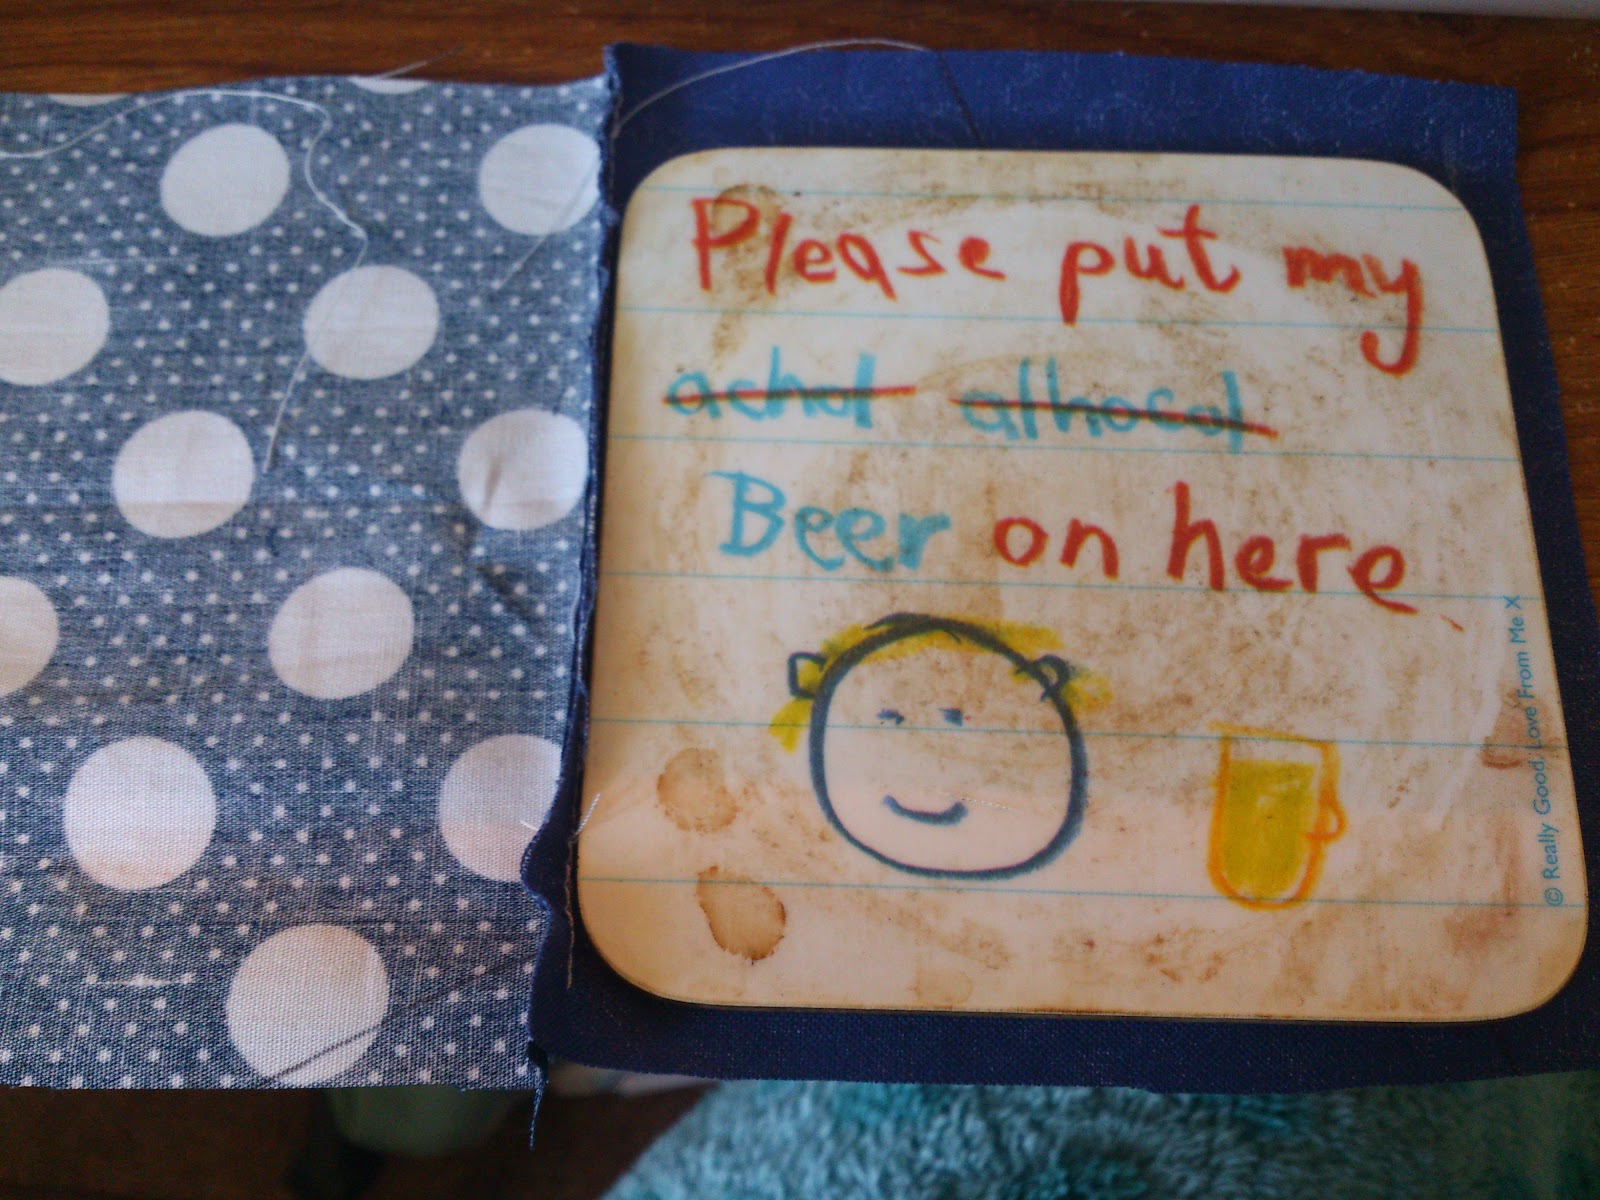 Please put my
achol alhocol
Beer on here
© Really Good. Love From Me X